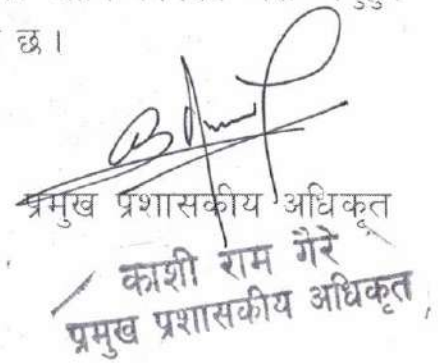 छ।
प्रमुख प्रशासकीय अधिकृत
काशी राम गैरे
प्रमुख प्रशासकीय अधिकृत